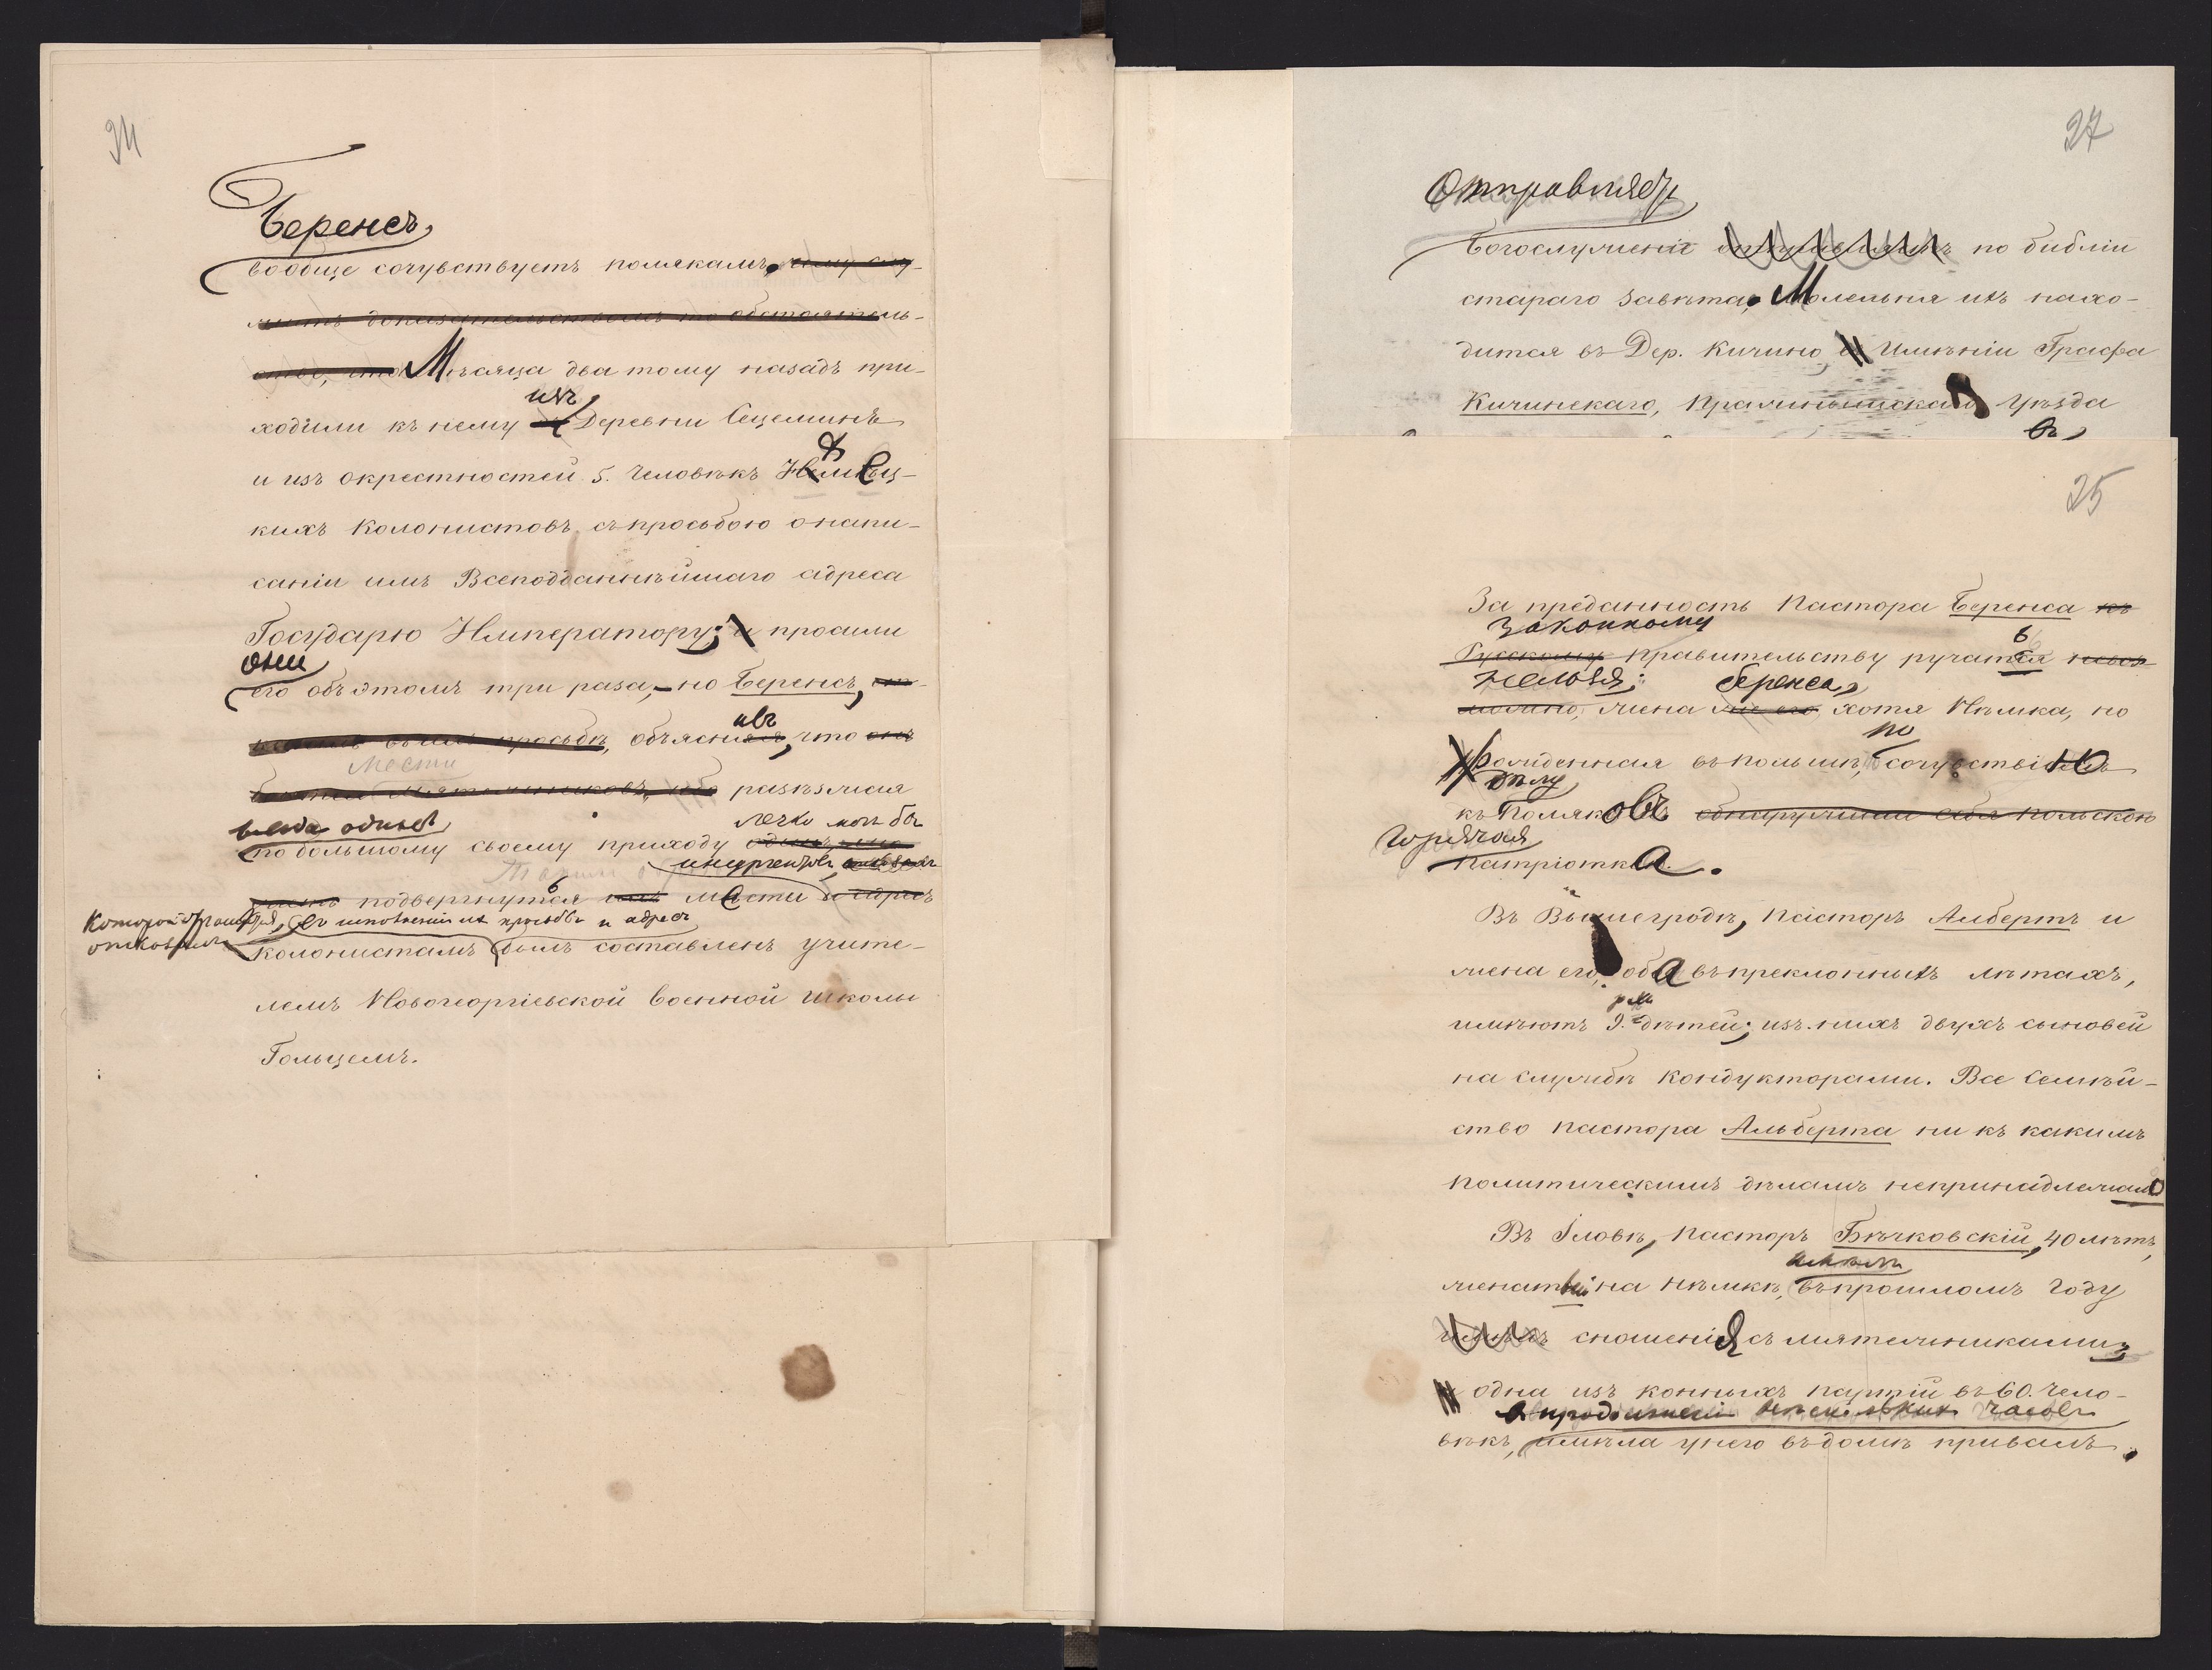 24
Беренсъ
вообще сочувствуетъ полякамъ, чему слу-
житъ доказательствомъ то обстоятель-
ство, что Мѣсяца два тому назадъ при-
изъ
ходили къ нему Деревни Сецеминъ
и изъ окрестностей 5. Человѣкъ Нѣмец-
кихъ Колонистовъ съ просьбою о напи-
саніи имъ Всеподданнѣйшаго адреса
Государю Императору; и просили
они
его объ этомъ три раза, но Беренсъ,
просьбѣ, объясняя, что онъ
мести
мятежниковъ, ибо разъѣзжая
всегда одинъ легко могъ бы
по большому своему приходу
инсургентовъ,
подвергнуться мести
Которой страшася, въ исполненіи ихъ просьбы и адресъ
отказалъ
Колонистамъ былъ составленъ учите-
лемъ Новогеоргіевской Военной Школы
Гольцемъ.
27
Отправляетъ
Богослуженіе по библіи
стараго завѣта, Молельня ихъ нахо-
дится въ Дер. Кичино, Имѣніи Графа
Кичинскаго, Праснышскаго Уѣзда
въ
25
За преданность Пастора Беренса къ
Законному
Русскому Правительству ручаться
нельзя; Беренса,
жена его хотя Нѣмка, но
по
Рожденная въ Польшѣ, сочувствію
дѣлу
къ Поляковъ обнаружила себя Польскою
Горячая
Патріотка.
Въ Вышегродѣ, Пасторъ Альбертъ и
жена его, оба въ преклонныхъ лѣтахъ,
имѣютъ 9. дѣтей; изъ нихъ двухъ сыновей
на службѣ Кондукторами. Все Семѣй-
ство Пастора Альберта ни къ какимъ
Политическимъ дѣламъ непринадлежало
Въ Іловѣ, Пасторъ Бѣчковскій, 40 лѣтъ,
имѣлъ
женатый на Нѣмкѣ, въ прошломъ году
имѣлъ сношенія съ мятежниками,
одна изъ конныхъ партій въ 60. Чело-
въ продолженіи нѣсколькихъ часовъ
вѣкъ, имѣла у него въ домѣ привалъ.